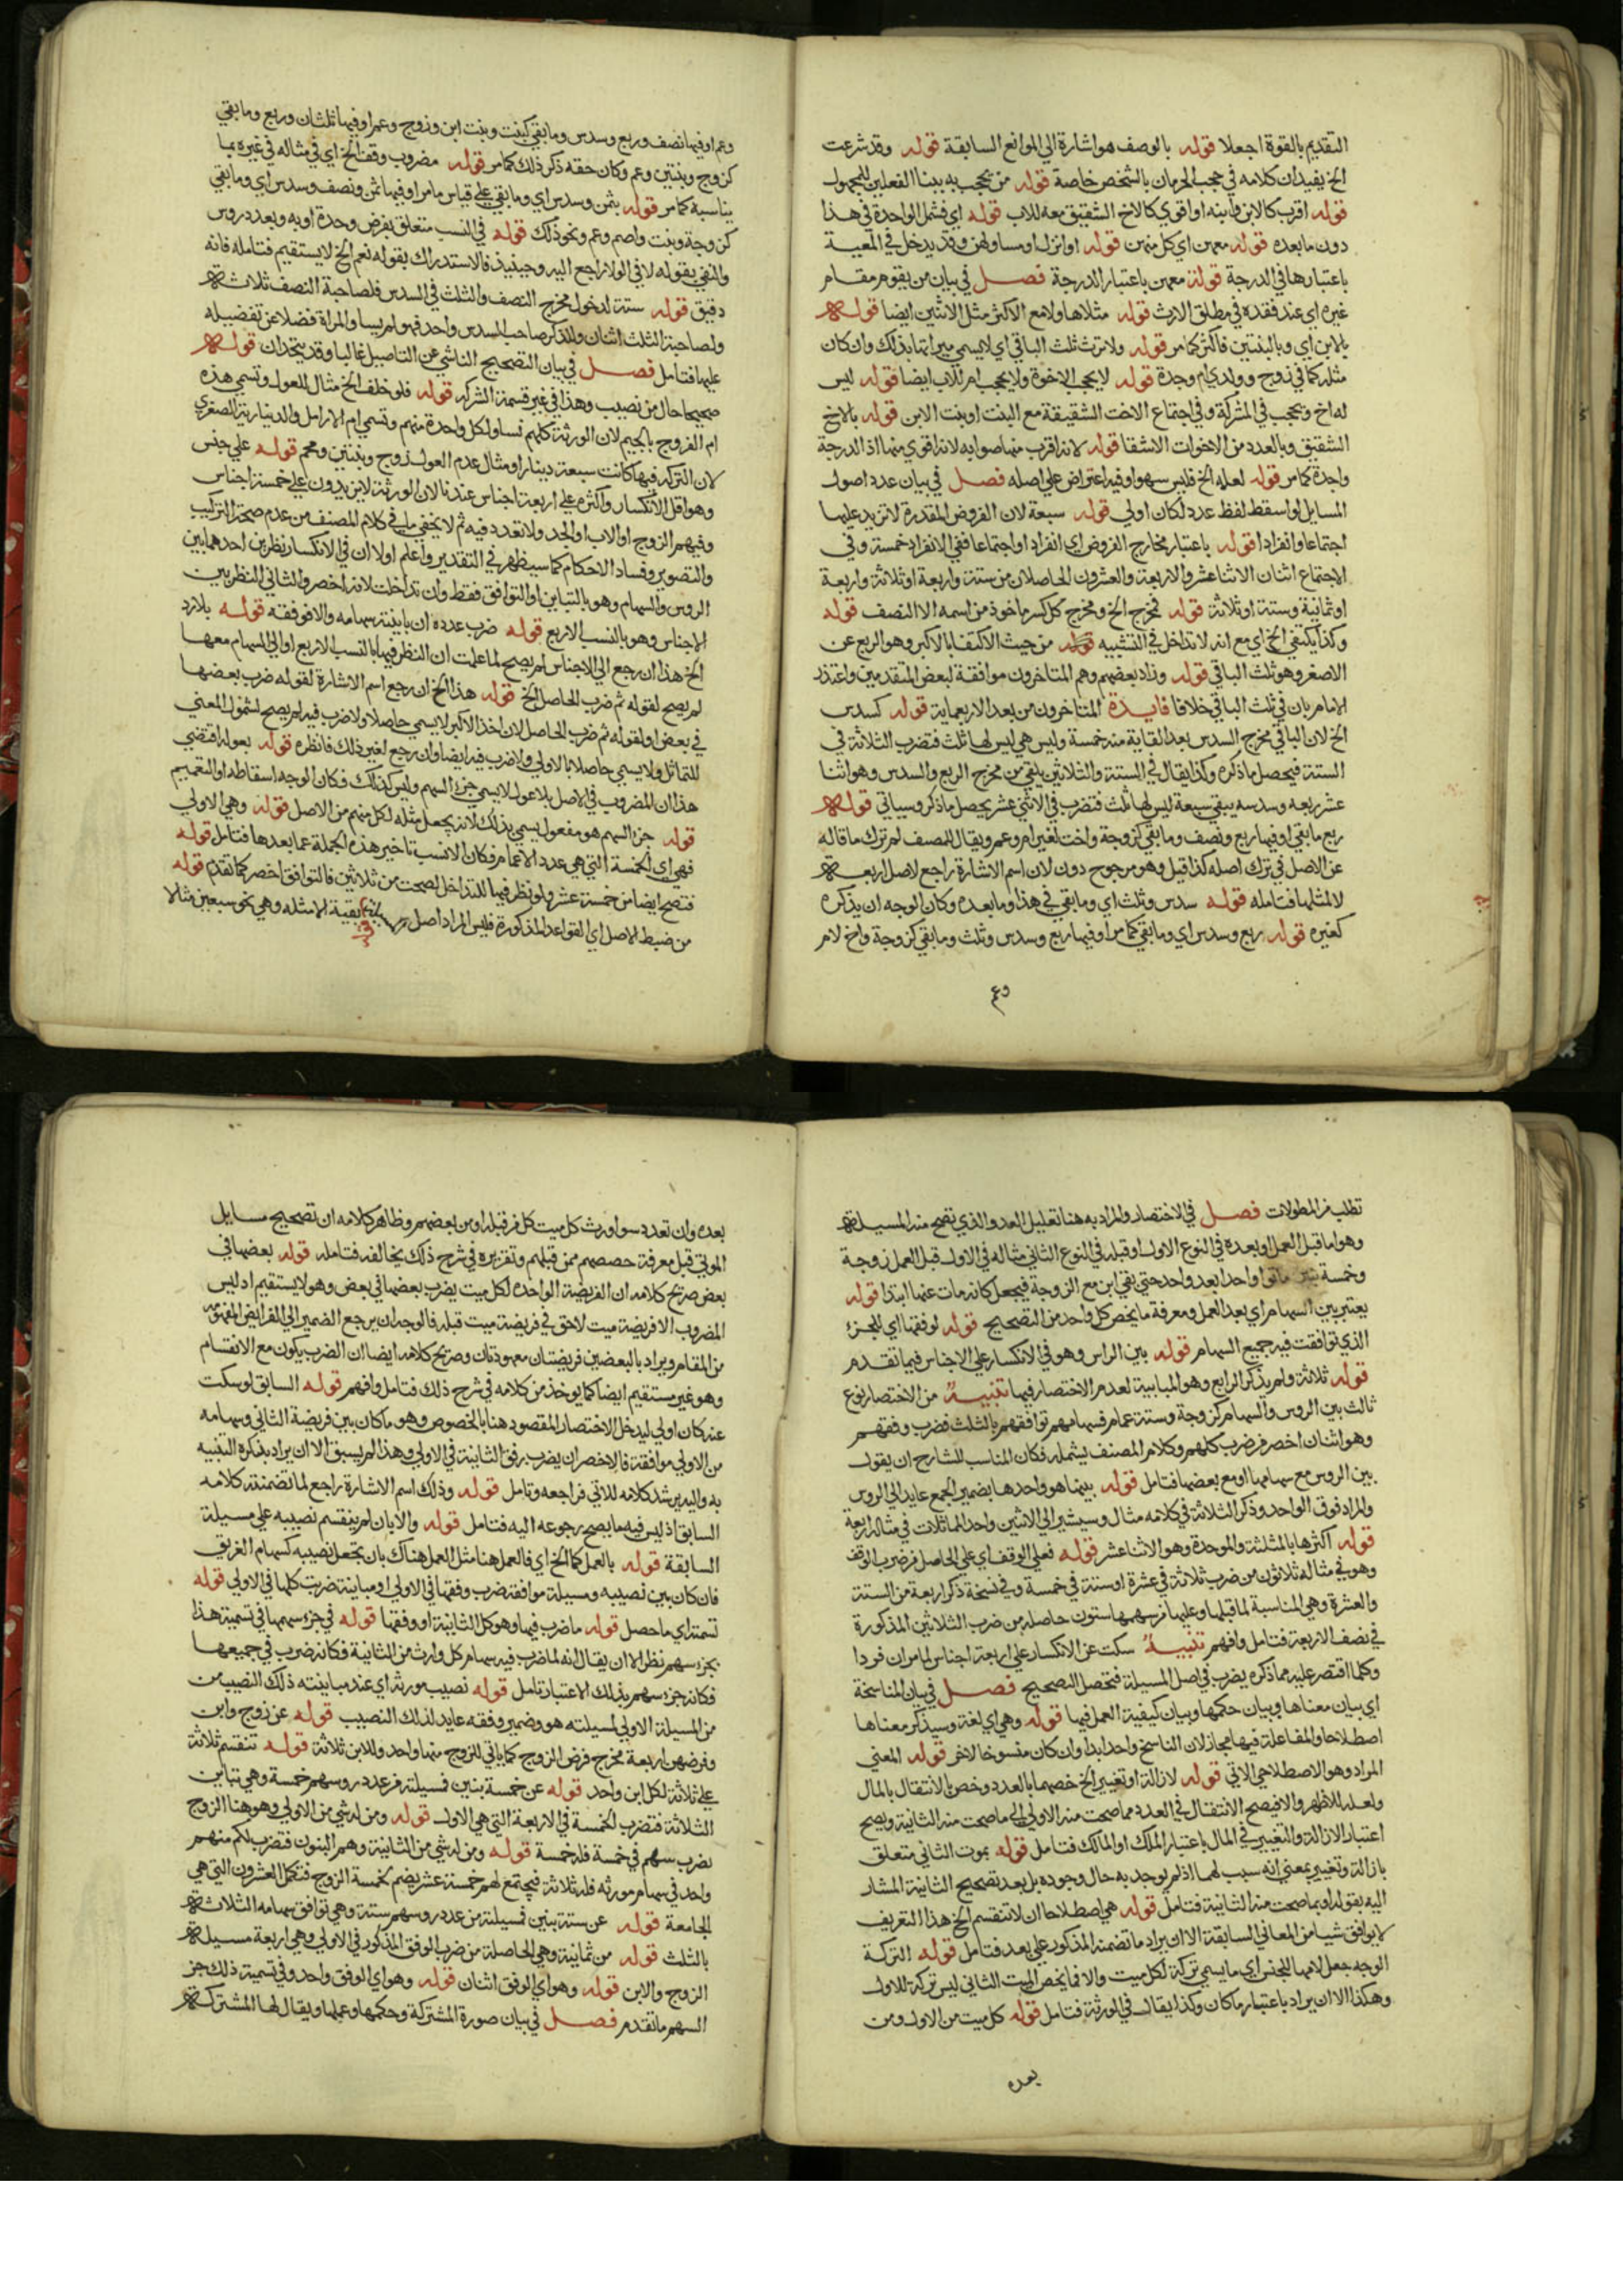 التقديم بالقوة اجعلا قوله بالوصف هو اشارة الي الموانع السابقة قوله وقد شرعت
الخ يفيد ان كلامه في حجب الحرمان بالشخص خاصة قوله من يحجب به ببنا الفعلين للمجهول
قوله اقرب كالابن وابنه او اقوي كالاخ الشقيق معه للاب قوله اي فشمل الواحدة في هذا
دون ما بعده قوله معهن اي كل منهن قوله او انزل او مساو لهن وقد يدخل في المعية
باعتبارها في الدرجة قوله معهن باعتبار الدرجة فصل في بيان من يقوم مقام
غيره اي عند فقده في مطلق الارث قوله مثلاها ولا مع الاكثر مثل الاثنين ايضا قوله
بالابن اي وبالبنتين فاكثر كما مر قوله ولا ترث ثلث الباقي اي لا يسمي ميراثها بذلك وان كان
مثله كما في زوج وولدي ام وجدة قوله لا يحجب الاخوة ولا يحجب ام للاب ايضا قوله ليس
له اخ ويحجب في المشركة وفي اجتماع الاخت الشقيقة مع البنت او بنت الابن قوله بالاخ
الشقيق وبالعدد من الاخوات الاشقا قوله لانه اقرب منها صوابه لانه اقوي منها اذ الدرجة
واحدة كما مر قوله لعله الخ فليس سهوا وفيه اعتراض علي اصله فصل في بيان عدد اصول
المسايل لو اسقط لفظ عدد لكان اولي قوله سبعة لان الفروض المقدرة لا تزيد عليها
اجتماعا وانفرادا قوله باعتبار مخارج الفروض اي انفرادا واجتماعا ففي الانفراد خمسة وفي
الاجتماع اثنان الاثنا عشر والاربعة والعشرون الحاصلان من ستة واربعة او ثلاثة واربعة
او ثمانية وستة او ثلاثة قوله فخرج الخ ومخرج كل كسر ماخوذ من اسمه الا النصف قوله
وكذا يكتفي الخ اي مع انه لا تداخل في التشبيه قوله من حيث الاكتفا بالاكبر وهو الربع عن
الاصغر وهو ثلث الباقي قوله وزاد بعضهم وهم المتاخرون موافقة لبعض المتقدمين واعتذر
الامام بان في ثلث الباقي خلافا فايدة المتاخرون من بعد الاربعماية قوله كسدس
الخ لان الباقي مخرج السدس بعد القاية منه خمسة وليس هي ليس لها ثلث فتضرب الثلاثة في
الستة فيحصل ما ذكره وكذا يقال في الستة والثلاثين يلقي من مخرج الربع والسدس وهو اثنا
عشر ربعه وسدسه يبقي سبعة ليس لها ثلث فتضرب في الاثني عشر يحصل ما ذكر وسياتي قوله
ربع ما بقي او فيها ربع ونصف وما بقي كزوجة واخت لغير ام وعم ويقال للمصنف لم ترك ما قاله
عن الاصل في ترك اصله كذا قيل وهو مرجوح دون لان اسم الاشارة راجع لاصل اربعة
لا لمثلها فتامله قوله سدس وثلث اي وما بقي في هذا وما بعده وكان الوجه ان يذكره
كغيره قوله ربع وسدس اي وما بقي كما مر او فيها ربع وسدس وثلث وما بقي كزوجة واخ لام
وعم
وعم او فيها نصف وربع وسدس وما بقي كبنت وبنت ابن وزوج وعم او فيها ثلثان وربع وما بقي
كزوج وبنتين وعم وكان حقه ذكر ذلك كما مر قوله مضروب وقف الخ اي في مثاله في غيره بما
يناسبه كما مر قوله بثمن وسدس اي وما بقي علي قياس ما مر او فيها ثمن ونصف وسدس اي وما بقي
كزوجة وبنت وام وعم ونحو ذلك قوله في النسب متعلق بفرض وحدة او به وبعدد روس
والنفي بقوله لا في الولا راجع اليه وحينيذ فالاستدراك بقوله نعم الخ لا يستقيم فتامله فانه
دقيق قوله ستة لدخول مخرج النصف والثلث في السدس فلصاحبة النصف ثلاثة
ولصاحبة الثلث اثنان وللذكر صاحب السدس واحد فهو لم يساو المراة فضلا عن تفضيله
عليها فتامل فصل في بيان التصحيح الناشي عن التاصيل غالبا وقد يتحدان قوله
صحيحا حال من نصيب وهذا في غير قسمة الشركة قوله فلو خلف الخ مثال للعول وتسمي هذه
ام الفروج بالجيم لان الورثة كلهم نسا ولكل واحدة منهم وتسمي ام الارامل والدينارية الصغري
لان التركة فيها كانت سبعة دينار او مثال عدم العول زوج وبنتين وعم قوله علي جنس
وهو اقل الانكسار واكثره علي اربعة اجناس عندنا لان الورثة لا يزيدون علي خمسة اجناس
وفيهم الزوج او الاب او الجد ولا تعدد فيه ثم لا يخفي ما في كلام المصنف من عدم صحة التركيب
والتصوير وفساد الاحكام كما سيظهر في التقدير واعلم اولا ان في الانكسار نظرين احدهما بين
الروس والسهام وهو بالتباين او التوافق فقط وان تداخلت لانه اخصر والثاني النظر بين
الاجناس وهو بالنسب الاربع قوله ضرب عدده ان باينته سهامه والا فوفقه قوله بلا رد
الخ هذا ان رجع الي الاجناس لم يصح لما علمت ان النظر فيها بالنسب الاربع او الي السهام معها
لم يصح لقوله ثم ضرب الحاصل الخ قوله هذا الخ ان رجع اسم الاشارة لقوله ضرب بعضها
في بعض او لقوله ثم ضرب الحاصل لان اخذ الاكبر لا يسمي حاصلا ولا ضرب فيه لم يصح لشمول المعني
للتماثل ولا يسمي حاصلا بالاولي ولا ضرب فيه ايضا وان رجع لغير ذلك فانظره قوله بعوله اقتضي
هذا ان المضروب في الاصل بلا عول لا يسمي جزء السهم وليس كذلك فكان الوجه اسقاطه او التعميم
قوله جزء السهم هو مفعول يسمي بذلك لانه يجعل مثله لكل منهم من الاصل قوله وهي الاولي
فهي اي الخمسة التي هي عدد الاعمام فكان الانسب تاخير هذه الجملة عما بعدها فتامل قوله
فتصح ايضا من خمسة عشر ولو نظر فيها للتداخل لصحت من ثلاثين فالتوافق اخصر كما تقدم قوله
من ضبط الاصل اي القواعد المذكورة فليس المراد اصل بقية الامثله وهي نحو سبعين مثالا
تطلب من المطولات فصل في الاختصار والمراد به هنا تعليل العدد الذي تصح منه المسيلة
وهو اما قبل العمل او بعده في النوع الاول او قبله في النوع الثاني مثاله في الاول قبل العمل زوجة
وخمسة بنين ماتوا واحدا بعد واحد حتي بقي ابن مع الزوجة فيجعل كانه مات عنهما ابتدا قوله
يعتبر بين السهام اي بعد العمل ومعرفة ما يخص كل واحد من التصحيح قوله لوفقها اي للجزء
الذي توافقت فيه جميع السهام قوله بين الراس وهو في الانكسار علي الاجناس فيما تقدم
قوله ثلاثة ولم يذكر الرابع وهو المباينة لعدم الاختصار فيها تنبيه من الاختصار نوع
ثالث بين الروس والسهام كزوجة وستة عمام فسهامهم توافقهم بالثلث فضرب وفقهم
وهو اثنان اخصر من ضرب كلهم وكلام المصنف يشمله فكان المناسب للشارح ان يقول
بين الروس مع سهامها او مع بعضها فتامل قوله بينما هو واحدها بضمير الجمع عايد الي الروس
والمراد فوق الواحد وذكر الثلاثة في كلامه مثال وسيشير الي الاثنين واحد المماثلات في مثاله اربعة
قوله اكثرها بالمثلثة والموحدة وهو الاثنا عشر قوله فعلي الوقف اي علي الحاصل من ضرب الوفق
وهو في مثاله ثلاثون من ضرب ثلاثة في عشرة او ستة في خمسة وفي نسخة ذكر اربعة من الستة
والعشرة وهي المناسبة لما قبلها وعليها فزسهمها ستون حاصله من ضرب الثلاثين المذكورة
في نصف الاربعة فتامل وافهم تنبيه سكت عن الانكسار علي اربعة اجناس لما مر ان فردا
وكلما اقتصر عليه مما ذكره يضرب في اصل المسيلة فتحصل التصحيح فصل في بيان المناسخة
اي بيان معناها وبيان حكمها وبيان كيفية العمل فيها قوله وهي اي لغة وسيذكر معناها
اصطلاحا والمفاعلة فيها مجاز لان الناسخ واحد ابدا وان كان منسوخا لاخر قوله المعني
المراد وهو الاصطلاحي الاتي قوله لازالة او تغيير الخ خصها بالعدد وخص الانتقال بالمال
ولعله للاظهر والا فيصح الانتقال في العدد مما صحت منه الاولي الي ما صحت منه الثانية ويصح
اعتبار الازالة والتغيير في المال باعتبار الملك او المالك فتامل قوله بموت الثاني متعلق
بازالة وتغيير بمعني انه سبب لهما اذ لم يوجد به حال وجوده بل بعد تصحيح الثانية المشار
اليه بقوله او بما صحت منه الثانية فتامل قوله هي اصطلاحا ان لا تنقسم الخ هذا التعريف
لا يوافق شيا من المعاني السابقة الا ان يراد ما تضمنه المذكور علي بعد فتامل قوله التركة
الوجه جعل لامها للجنس اي ما يسمي تركة لكل ميت والا فما يخص الميت الثاني ليس تركة للاول
وهكذا الا ان يراد باعتبار ما كان وكذا يقال في الورثة فتامل قوله كل ميت من الاول ومن
بعده
بعده وان تعدد سوا ورث كل ميت كل من قبله او من بعضهم وظاهر كلامه ان تصحيح مسايل
الموتي قبل معرفة حصصهم ممن قبلهم وتقريره في شرح ذلك يخالفه فتامله قوله بعضها في
بعض صريح كلامه ان الفريضة الواحدة لكل ميت يضرب بعضها في بعض وهو لا يستقيم اذ ليس
المضروب الا فريضة ميت لاحق في فريضة ميت قبله فالوجه ان يرجع الضمير الي الفرايض المفهومة
من المقام ويراد بالبعضين فريضتان معهودتان وصريح كلامه ايضا ان الضرب يكون مع الانقسام
وهو غير مستقيم ايضا كما يوخذ من كلامه في شرح ذلك فتامل وافهم قوله السابق لو سكت
عنه كان اولي ليدخل الاختصار المقصود هنا بالخصوص وهو ما كان بين فريضة الثاني وسهامه
من الاولي موافقة فالاخصر ان يضرب وفق الثانية في الاولي وهذا لم يسبق الا ان يراد بذكره التنبيه
به واليه يرشد كلامه للاتي فراجعه وتامل قوله وذلك اسم الاشارة راجع لما تضمنته كلامه
السابق اذ ليس فيه ما يصح رجوعه اليه فتامل قوله والا بان لم ينقسم نصيبه علي مسيلة
السابقة قوله بالعمل كما الخ اي فالعمل هنا مثل العمل هناك بان تجعل نصيبه كسهام الفريق
فان كان بين نصيبه ومسيلته موافقة ضرب وفقها في الاولي او مباينة ضربت كلها في الاولي قوله
تسمتة اي ما حصل قوله ما ضرب فيها وهو كل الثانية او وفقها قوله في جزء سهمها في تسمية هذا
بجزء سهم نظر الا ان يقال انه لما ضرب فيه سهام كل وارث من الثانية فكانه ضرب في جميعها
فكانه جزء سهم بذلك الاعتبار تامل قوله نصيب مورثه اي عند مباينته ذلك النصيب من
من المسيلة الاولي لمسيلته هو وضمير وفقه عايد لذلك النصيب قوله عن زوج وابن
وفرضهن اربعة مخرج فرض الزوج كما ياتي للزوج منها واحد وللابن ثلاثة قوله تنقسم ثلاثة
علي ثلاثة لكل ابن واحد قوله عن خمسة بنين فمسيلته من عدد روسهم خمسة وهي تباين
الثلاثة فتضرب الخمسة في الاربعة التي هي الاول قوله ومن له شي من الاولي وهو هنا الزوج
يضرب سهم في خمسة فله خمسة قوله ومن له شي من الثانية وهم البنون فتضرب لكل منهم
واحد في سهام مورثه فله ثلاثة فيجتمع لهم خمسة عشر يضم لخمسة الزوج فتكمل العشرون التي هي
الجامعة قوله عن ستة بنين فمسيلته من عدد روسهم ستة وهي توافق سهامه الثلاثة
بالثلث قوله من ثمانية وهي الحاصلة من ضرب الوفق المذكور في الاولي وهي اربعة مسيلة
الزوج والابن قوله وهو اي الوفق اثنان قوله وهو اي الوفق واحد وفي تسمية ذلك جزء
السهم ما تقدم فصل في بيان صورة المشتركة وحكمها وعملها ويقال لها المشتركة